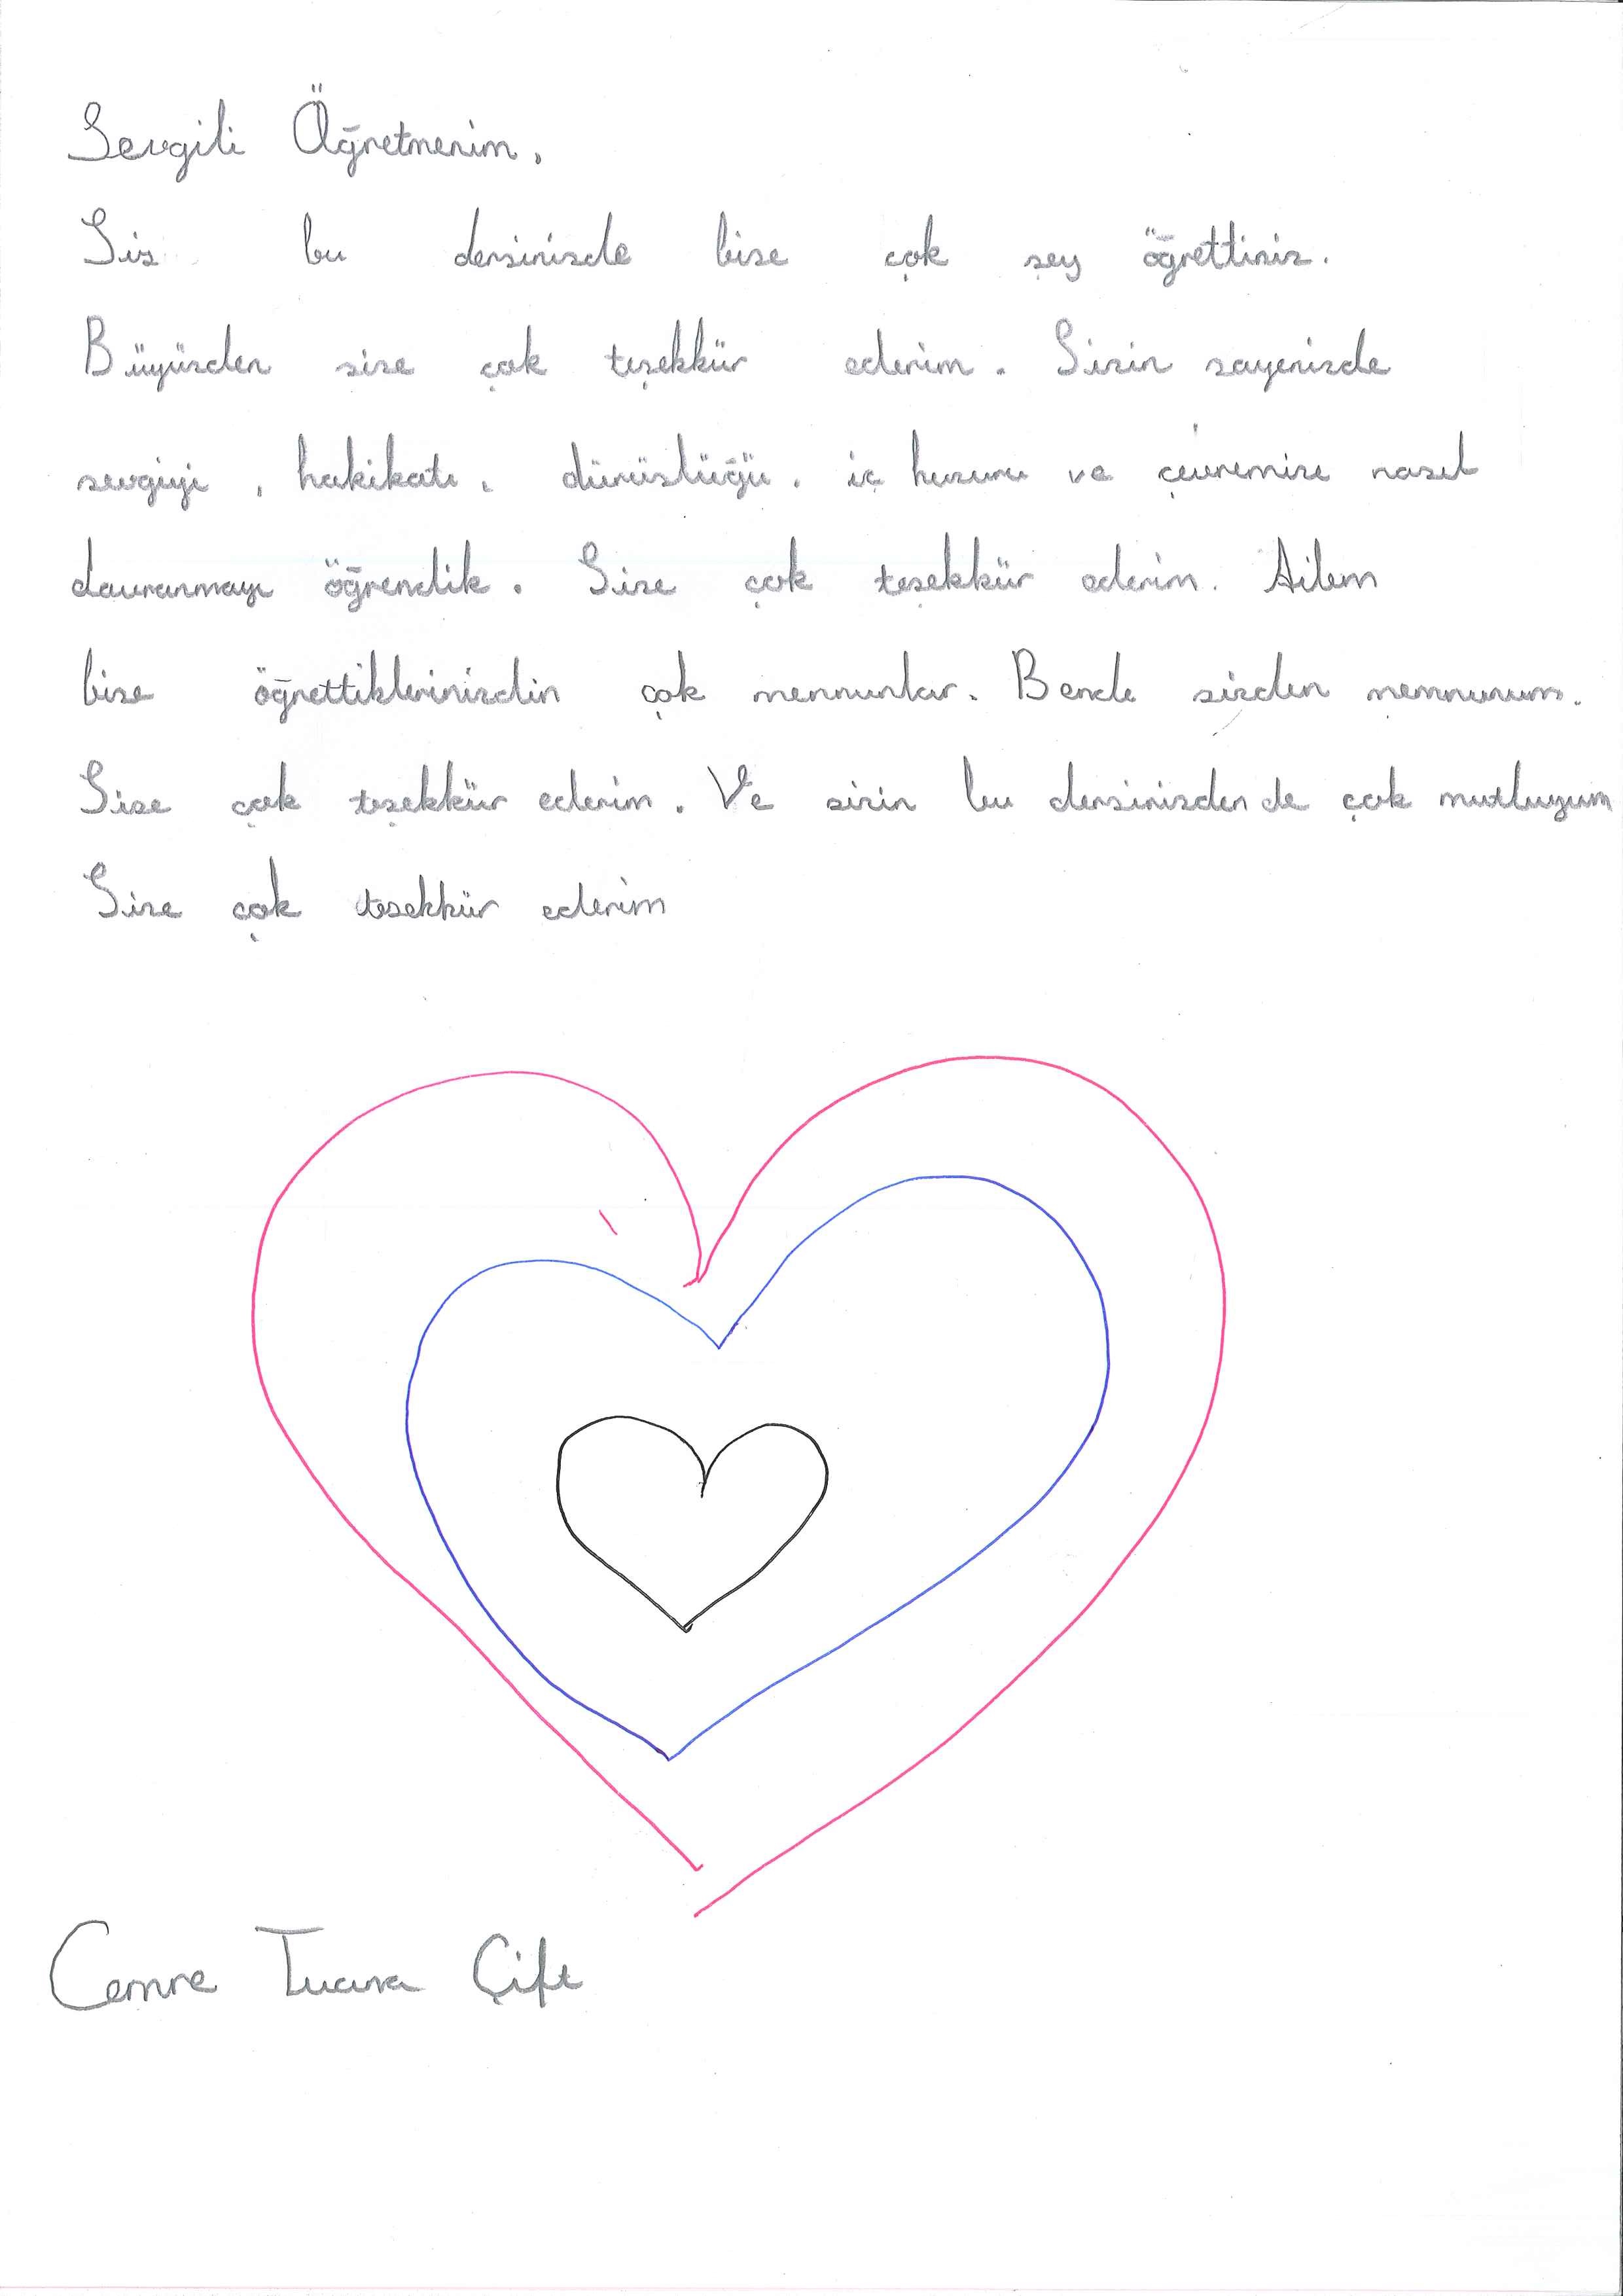 Sevgili Öğretmenim,
Siz bu dersinizde bize çok şey öğrettiniz.
Büyüzden size çok teşekkür ederim. Sizin sayenizde
sevgiyi, hakikatı, dürüstlüğü, iç huzuru ve çevremize nasıl
davranmayı öğrendik. Size çok teşekkür ederim. Ailem
bize öğrettiklerinizdin çok memnunlar. Bende sizden memnunum.
Size çok teşekkür ederim. Ve sizin bu dersinizden de çok mutluyum
Size çok teşekkür ederim
Cemre Tuana Çift